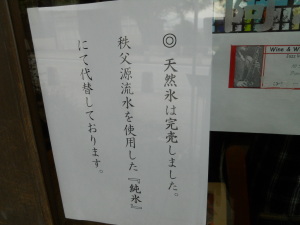 ◎ 天然氷は完売しました。
秩父源流水を使用した『純氷』
にて代替しております。
Wine & W